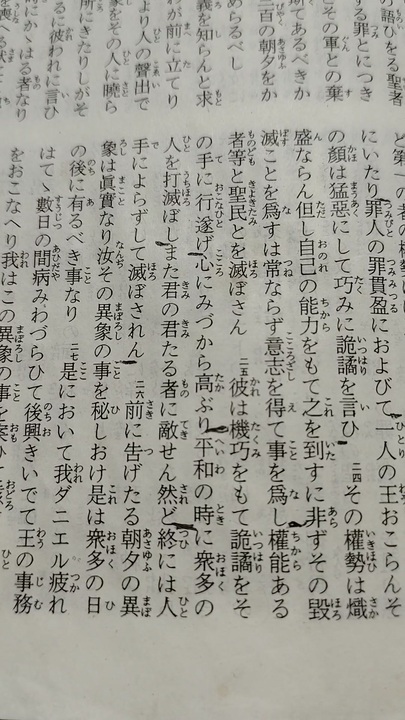 の語ひをる聖者
する罪とにつき
とその軍との棄
斯てあるべきか
三百の朝夕をか
めらるべし
義を知らんと求
わが前に立てり
より人の聲出で
象をその人に曉ら
るに彼われに言ひ
所にきたりしがそ
にいたり罪人の罪貫盈におよびて一人の王おこらんそ
の顔は猛惡にして巧みに詭譎を言ひ 二四その權勢は熾
盛ならん但し自己の能力をもて之を到すに非ずその毀
滅ことを爲すは常ならず意志を得て事を爲し權能ある
者等と聖民とを滅ぼさん 二五彼は機巧をもて詭譎をそ
の手に行遂げ心にみづから高ぶり平和の時に衆多の
人を打滅ぼしまた君の君たる者に敵せん然ど終には人
手によらずして滅ぼされん 二六前に告げたる朝夕の異
象は眞實なり汝その異象の事を秘しおけ是は衆多の日
の後に有るべき事なり 二七是において我ダニエル疲れ
はてゝ數日の間病みわづらひて後興きいでて王の事務
をおこなへり我はこの異象の事を